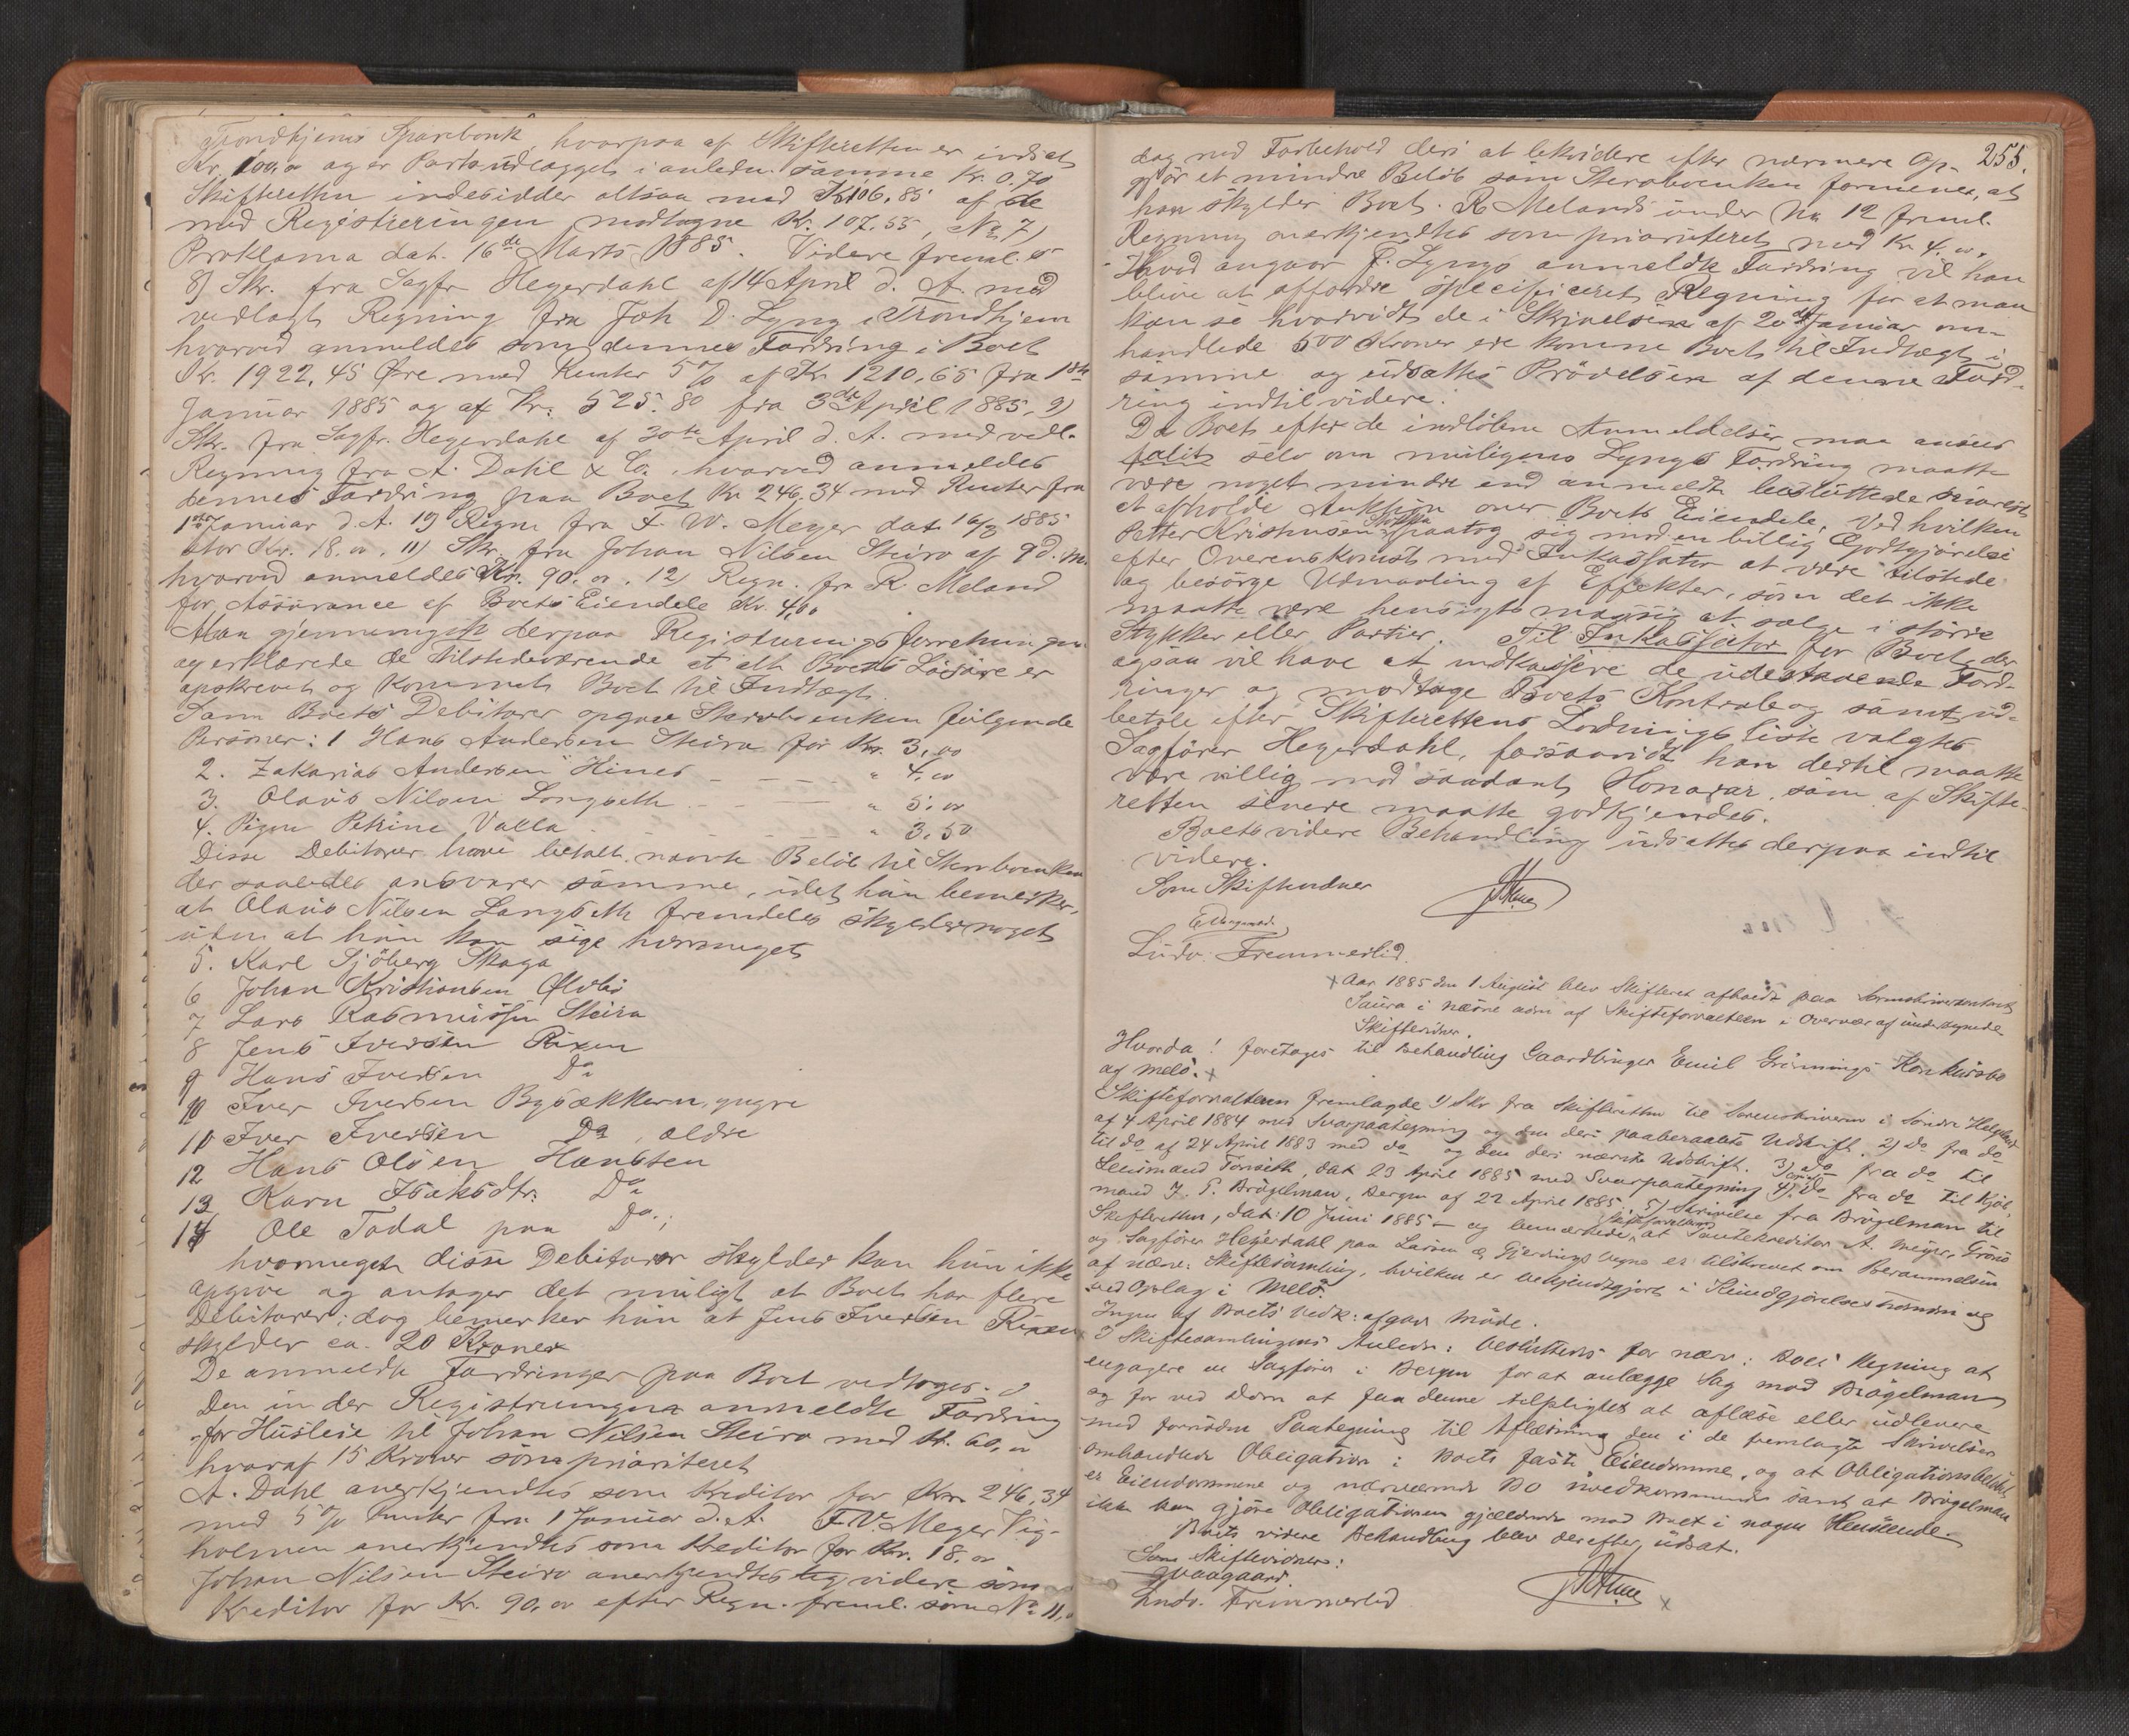 Trondhjems Sparebank, hvorpaa af Skifteretten er indsat
Kr. 100,00 og er Portoudlægget i anledn. samme Kr. 0.70
Skifteretten indesidder altsaa med Kr 106,85 af de
med Registreringen modtagne Kr. 107.55, No 7)
Proklama dat. 16de Marts 1885. Videre freml. s
8) Skr. fra Sagfr Hegerdahl af 14 April d. A. med
vedlagt Regning fra Joh D. Lyng i Trondhjem
hvorved anmeldes som dennes Fordring i Boet
Kr. 1922,45 Øre med Renter 5 % af Kr. 1210,65 fra 1ste
Januar 1885 og af Kr. 525.80 fra 3die April 1885, 9)
Skr. fra Sagfr. Hegerdahl af 30te April d. A. med vedl.
Regning fra A. Dahl & Co. hvorved anmeldes
dennes Fordring paa Boet Kr. 246,34 med Renter fra
1ste Januar d. A. 10) Regn fra F. W. Meyer dat 16/3 1885
stor Kr. 18.00. 11) Skr. fra Johan Nilsen Steiro af 9 d. M.
hvorved anmeldes Kr. 90.00. 12) Regn. fra R. Meland
for Assurance af Boets Eiendele Kr. 4,00
Man gjennemgik derpaa Registreringsforretningen
og erklærede de tilstedeværende at alt Boets Løsøre er
opskrevet og kommet Boet til Indtægt.
Som Boets Debitorer opgav Stervboenken følgende
Personer: 1 Hans Andersen Steiro for Kr. 3,00
2. Zakarias Andersen Hines - - - " 4,00
3. Olaus Nilsen Langseth - - - " 5,00
4. Pigen Petrine Valla - - - " 3,50
Disse Debitorer have betalt nævnte Beløb til Stervboenken
der saaledes ansvarer samme, idet hun bemerker,
at Olaus Nilsen Langseth fremdeles skylder noget
uden at hun kan sige hvormeget
5. Karl Sjöberg Skaga
6 Johan Kristiansen
7 Lars Rasmussen Steiro
8 Jens Iversen Rixen
9 Hans Iversen Do
10 Iver Iversen Bysækkern, yngre
11 Iver Iversen Do, ældre
12 Hans Olsen Hansten
13 Karn Isaksdtr. Do
14 Ole Todal paa Do.;
hvormeget disse Debitorer skylder kan hun ikke
opgive og antager det muligt at Boet har flere
Debitorer; dog bemerker hun at Jens Iversen Rixen
skylder ca. 20 Kroner
De anmeldte Fordringer paa Boet vedtoges.
Den under Registreringen anmeldte Fordring
for Husleie til Johan Nilsen Steiro med Kr. 60,00
hvoraf 15 Kroner som prioriteret
A. Dahl anerkjendtes som Kreditor for Kr. 246,34
med 5 % Renter fra 1 Januar d. A. F. W. Meyer Vig-
holmen anerkjendtes som Kreditor for Kr. 18.00
Johan Nilsen Steiro anerkjendtes videre som
Kreditor for Kr. 90,00 efter Regn. freml. som No 11,
255.
dog med Forbehold deri at likvidere efter nærmere Op-
gjør et mindre Beløb som Stervboenken formener, at
han skylder Boet. R Melands under No 12 freml.
Regning anerkjendtes som prioriteret med Kr 4.00.
Hvad angaar J. Lyngs anmeldte Fordring vil han
blive at affordre specificeret Regning for at man
kan se hvorvidt de i Skrivelsen af 20de Januar om-
handlede 500 Kroner ere komne Boet til Indtægt i
samme og udsattes Prøvelsen af denne Ford-
ring indtil videre.
Da Boet efter de indløbne Anmeldelser maa ansees
falit selv om muligens Lyngs Fordring maatte
være noget mindre end anmeldt besluttede snarest
at afholde Auktion over Boets Eiendele, ved hvilken
Petter Kristensen paatog sig mod en billig Godtgjørelse
efter Overenskomst med Inkassator at være tilstede
og besørge Udmaaling af Effekter, som det ikke
maatte være hensigtsmæssig at sælge i større
Stykker eller Partier. Til Inkassator for Boet der
ogsaa vil have at indkassere de udestaaende Ford-
ringer og modtage Boets Kontrabog samt ud-
betale efter Skifterettens Lodningsliste valgtes
Sagfører Hegerdahl, forsaavidt han dertil maatte
være villig mod saadant Honorar, som af Skifte-
retten senere maatte godkjendes.
Boets videre Behandling udsattes derpaa indtil
videre.
Som Skiftevidner
Ludv. Fremmerlid.
x Aar 1885 den 1 August blev Skifteret afholdt paa Sorenskriverkontoret
Saura i nærvær af Skifteforvalteren i Overvær af undertegnede
Skiftevidner.
Hvorda! foretages til Behandling Gaardbruger Emil Grønnings Konkursbo
af Melø. x
Skifteforvalteren fremlagde 1) Skr fra Skifteretten til Sorenskriveren i Søndre Helgeland
af 4 April 1884 med Svarpaategning og den deri paaberaabte Udskrift. 2) Do fra do
til do af 24 April 1883 med do og den deri nævnte Udskrift. 3) do fra do til
Lensmand Torseth, dat 23 April 1885 med Svarpaategning 4) do fra do til Kjøb-
mand J. P. Brögelman, Bergen af 22 April 1885, 5) Skrivelse fra Brögelman til
Skifteretten, dat: 10 Juni 1885 - og bemærkede Skifteforvalteren, at Pantekreditor A. Meyer, Tromsø
og Sagfører Hegerdahl paa Larsen & Gjerdings Vegne er tilskrevet om Berammelsen
af nærv. Skiftesamling, hvilken er bekjendtgjort i Kundgjørelsestidende og
ved Opslag i Melø.
Ingen af Boets Vedk: afgav Møde.
I Skiftesamlingens Anledn: besluttedes for nærv: Boes Regning at
engagere en Sagfører i Bergen for at anlægge Sag mod Brögelman
og for ved Dom at faa denne tilpligtet at aflæse eller udlevere
med fornøden Paategning til Aflæsning den i de fremlagte Skrivelser
omhandlede Obligation i Boets faste Eiendomme, og at Obligationsbeløbet
er Eiendommene og nærværende Bo uvedkommende samt at Brögelman
ikke kan gjøre Obligationen gjældende mod Boet i nogen Henseende.
Boets videre Behandling blev derefter udsat.
Som Skiftevidner:
Vaagaard.
Ludv. Fremmerlid